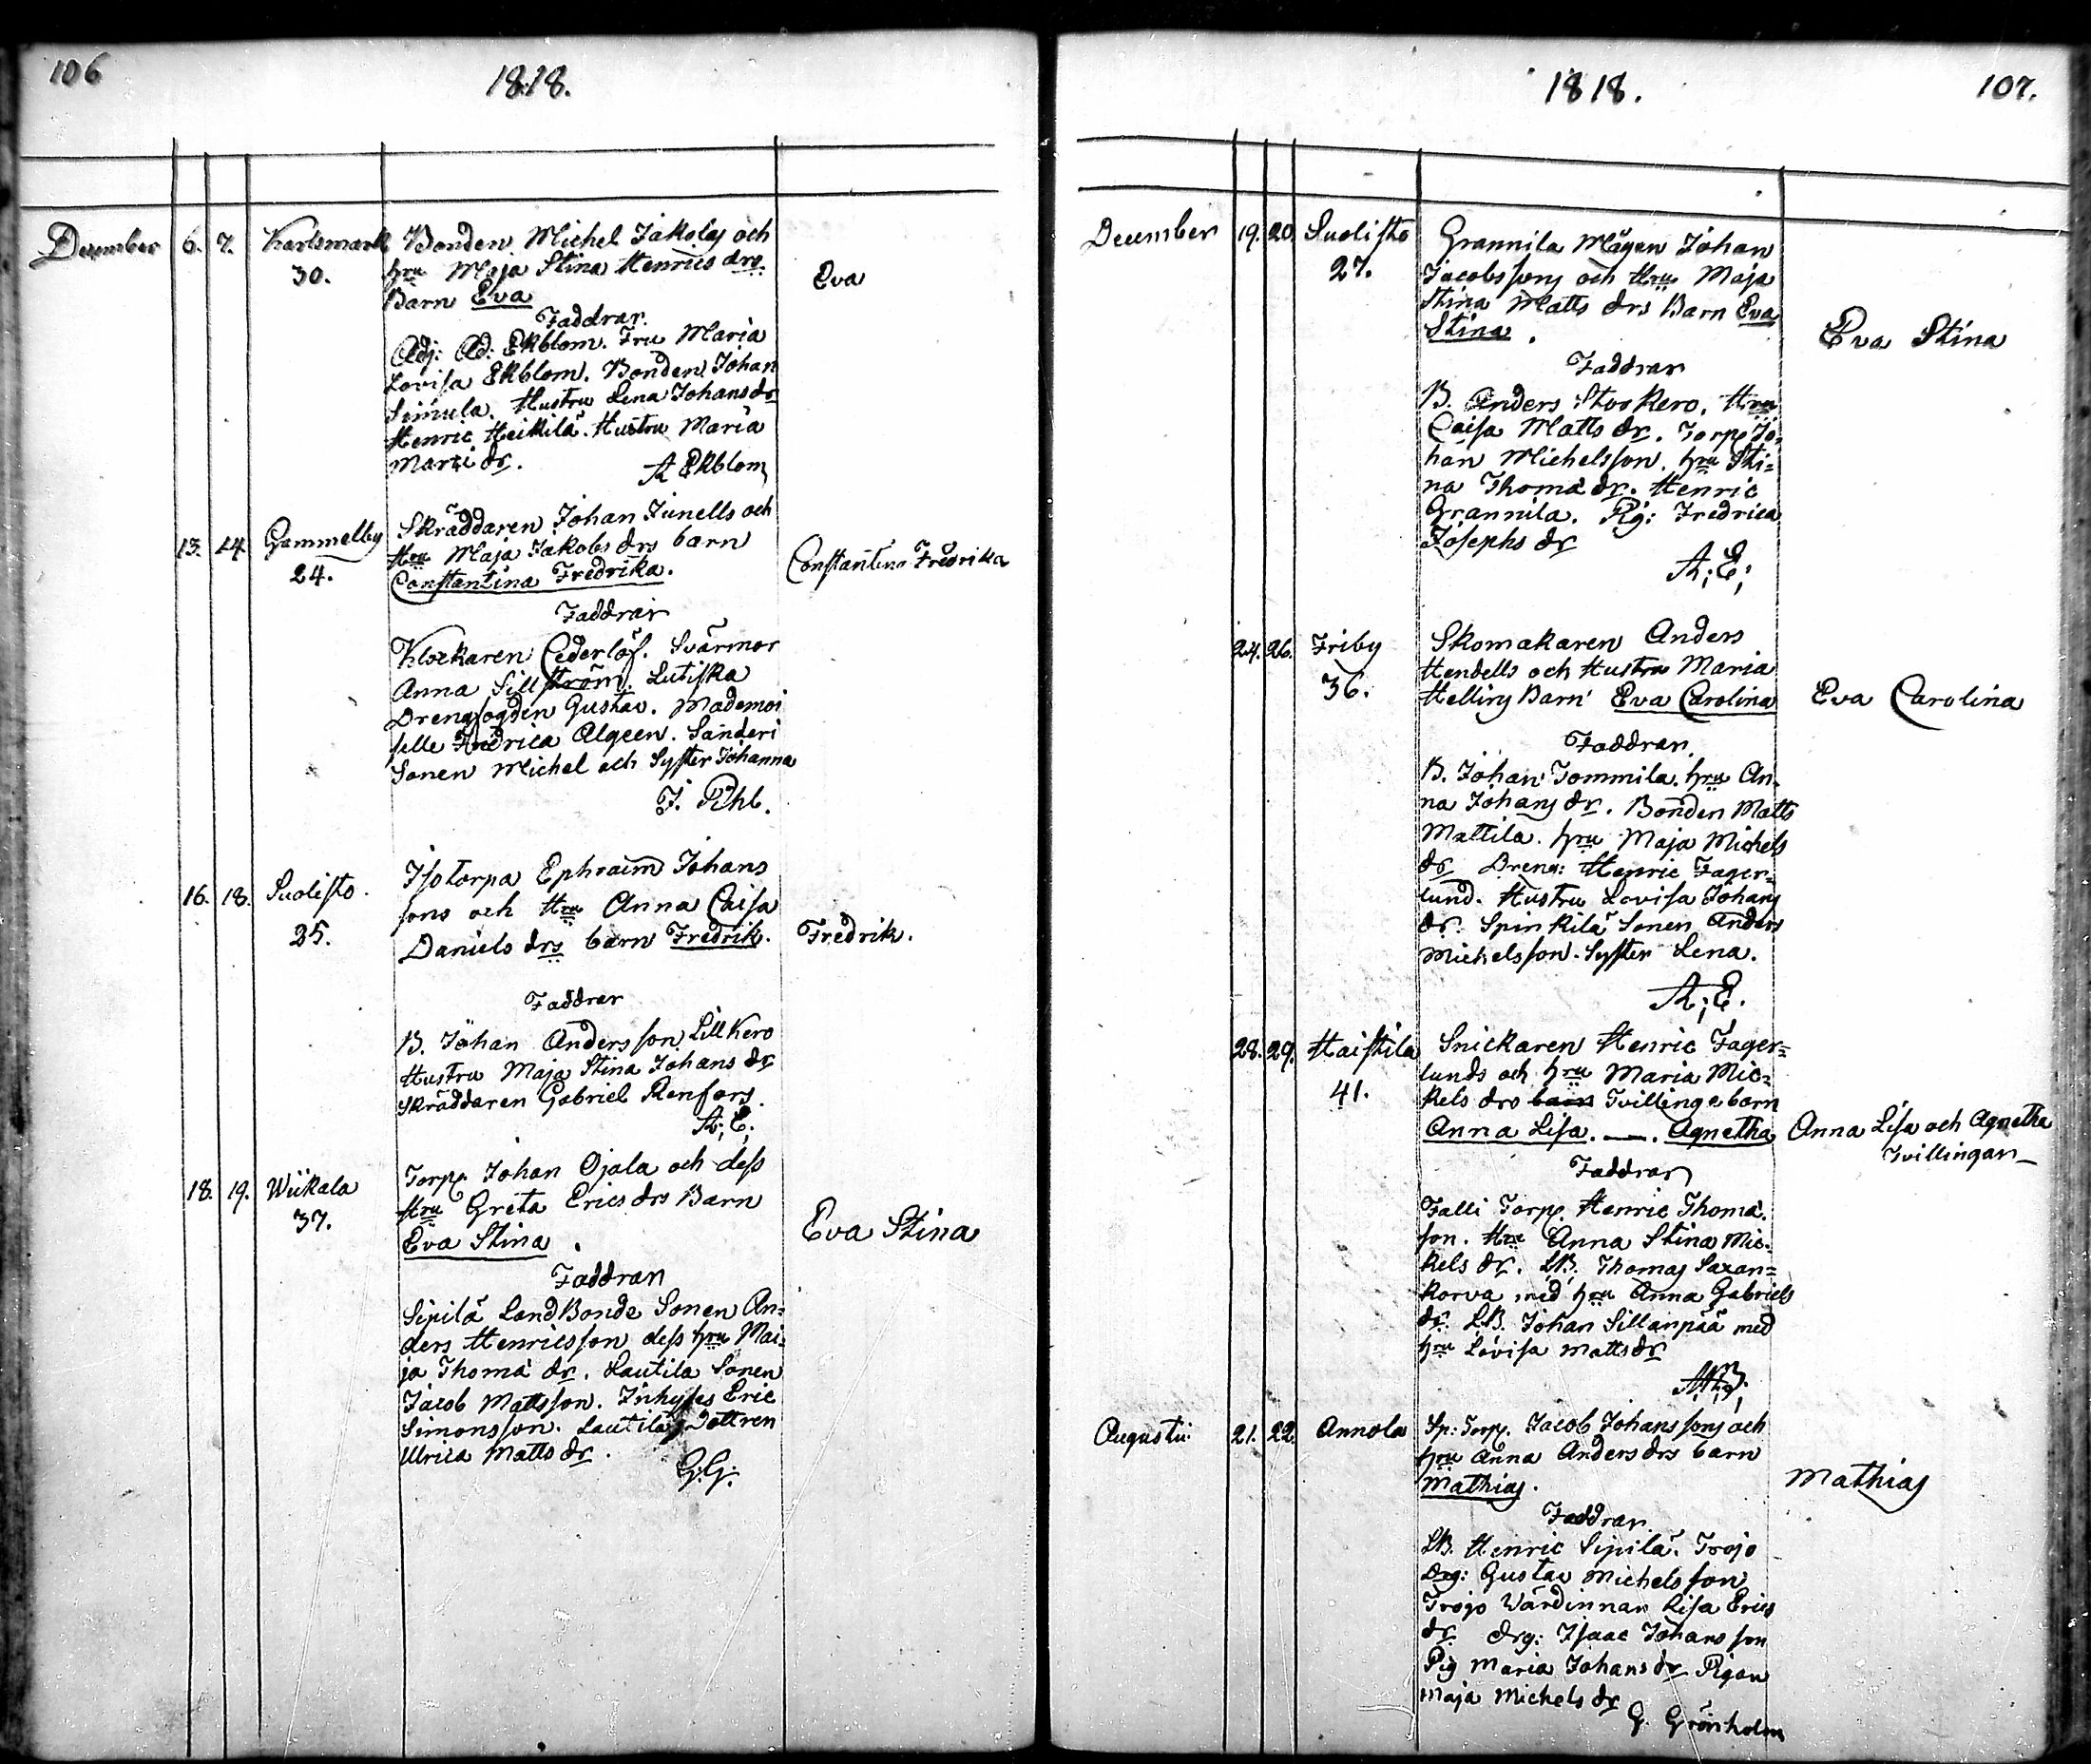 106
1818.
December 6. 7. Karlsmark Bonden Michel Jakobs och
30. hru Maja Stina Henrics drs
Barn Eva
Eva
Faddrar.
Adj: Ad: Ekblom. Fru Maria
Lovisa Ekblom. Bonden Johan
Simula. Hustru Lena Johans dr
Henric Heikilä. Hustru Maria
Marci dr.
A Ekblom
13. 14 Gammelby Skräddaren Johan Junells och
24. Hru Maja Jakobs drs barn
Constantina Fredrika.
Constantina Fredrika
Faddrar
Klockaren Cederlöf. Svärmor
Anna Sillström.
Drengfogden Gustav. Mademoi
selle Fredrica Algeen. Sanderi
Sonen Michel och Syster Johanna
16. 18. Suolisto. Isotorpa Ephraim Johans
25. sons och Hru Anna Caisa
Daniels drs barn Fredrik.
Fredrik.
Faddrar
B. Johan Andersson Lill Kero
Hustru Maja Stina Johans dr
Skräddaren Gabriel Renfors.
A; E.
18. 19. Wiikala Torp. Johan Ojala och dess
37. Hru Greta Erics drs Barn
Eva Stina.
Eva Stina
Faddrar
Sipilä LandBonde Sonen An=
ders Henricsson dess hru Mai=
ja Thomä dr. Lautila Sonen
Jacob Mattsson. Inhyses Eric
Simonsson. Lautila Dottren
Ulrica Matts dr.
G. G.
1818.
107.
December 19. 20. Suolisto Grannila Mågen Johan
27. Jacobssons och Hru Maja
Stina Matts drs Barn Eva
Stina.
Eva Stina
Faddrar
B. Anders Stor Kero. Hru
Caisa Matts dr. Torp. Jo=
han Michelsson. hru Sti=
na Thomä dr. Henric
Grannila. Pig: Fredrica
Josephs dr
A; E;
24. 26. Friby Skomakaren Anders
36. Hendells och Hustru Maria
Hellins Barn Eva Carolina
Eva Carolina
Faddrar
B. Johan Tommila. hru An=
na Johans dr. Bonden Matts
Mattila. hru Maja Michels
dr Dreng: Henric Fager=
lund. Hustru Lovisa Johans
dr. Spinkilä Sonen Anders
Michelsson. Syster Lena.
A; E.
28. 29. Haistila Snickaren Henric Fager=
41. lunds och hru Maria Mic=
kels drs barn Tvillinga barn
Anna Lisa. —. Agnetha
Anna Lisa och Agnetha
Tvillingar
Faddrar
Falli Torp. Henric Thomä.
son. Hru Anna Stina Mic=
kels dr. LB. Thomas Saxan=
korva med hru Anna Gabriels
dr. LB. Johan Sillanpää med
hru Lovisa Matts dr
Augusti 21. 22. Annola Sp: Torp. Jacob Johanssons och
hru Anna Anders drs barn
Mathias.
Mathias
Faddrar
LB. Henric Sipilä. Trojo
Drg: Gustav Michelsson
Trojo Wärdinnan Lisa Erics
dr drg: Isaac Johansson
Pig Maria Johans dr Pigan
Maja Michels dr
G. Grönholm